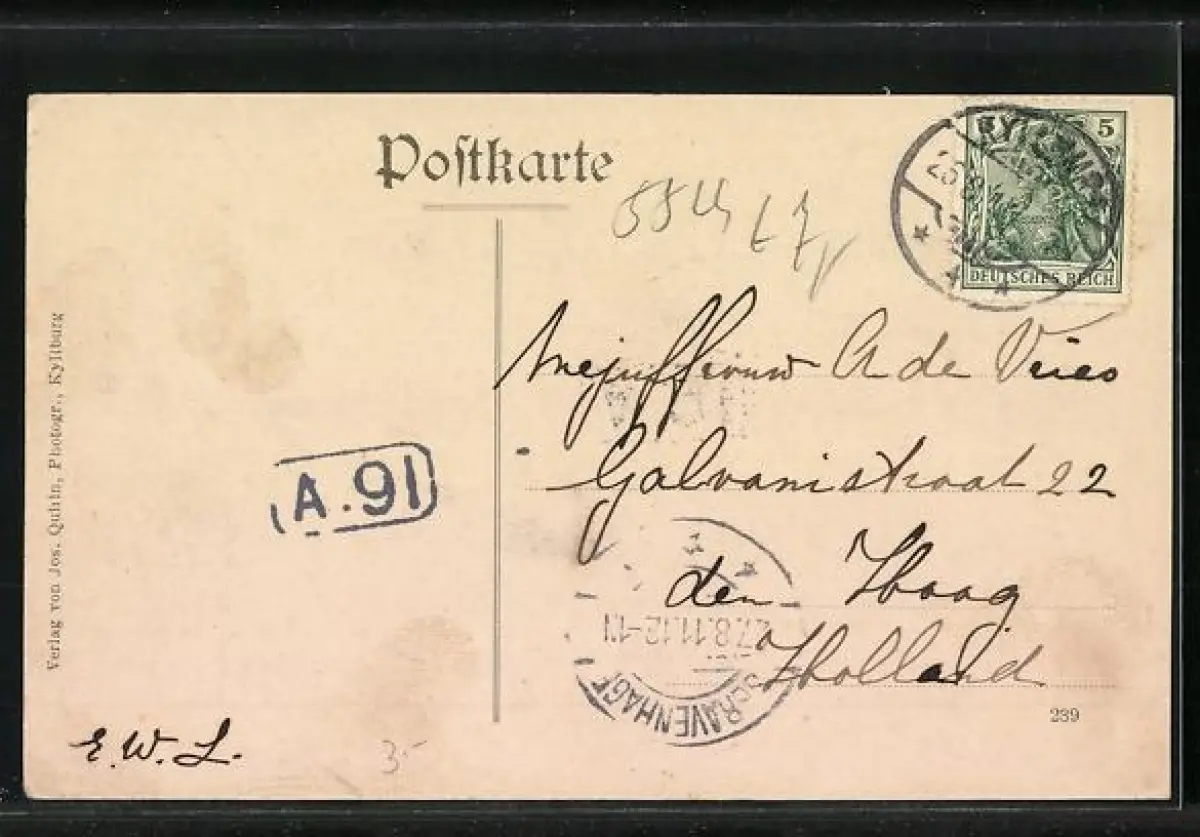 Postkarte
5
DEUTSCHES REICH
Mejuffrouw A de Vries
Galvanistraat 22
den Haag
Holland
A.91
27.8.11.12-1N
'SGRAVENHAGE
239
E. W. L.
3.-
Verlag von Jos. Quirin, Photogr., Kyllburg